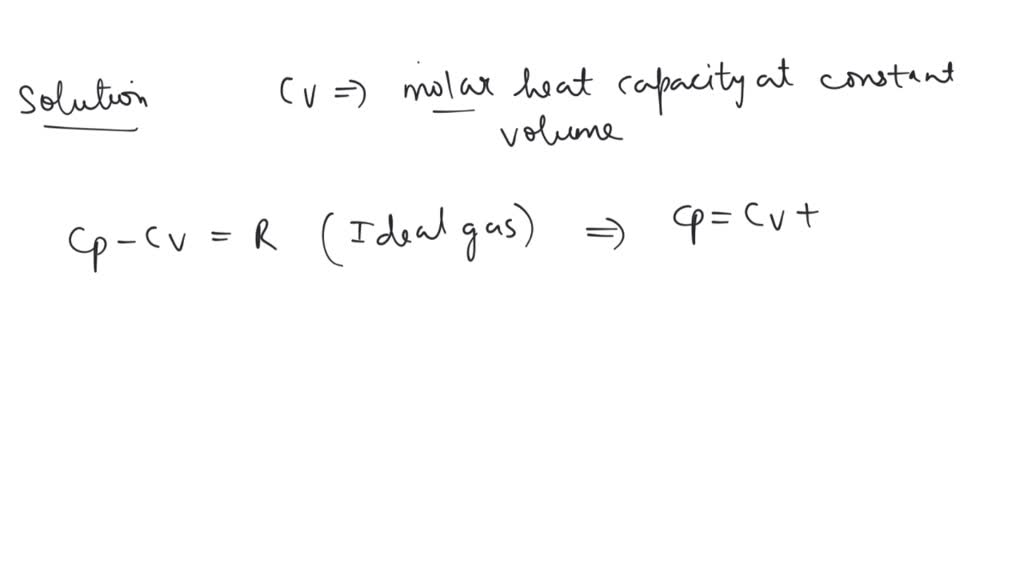 Solution Cv => molar heat capacity at constant
volume
Cp - Cv = R (Ideal gas) => Cp = Cv +